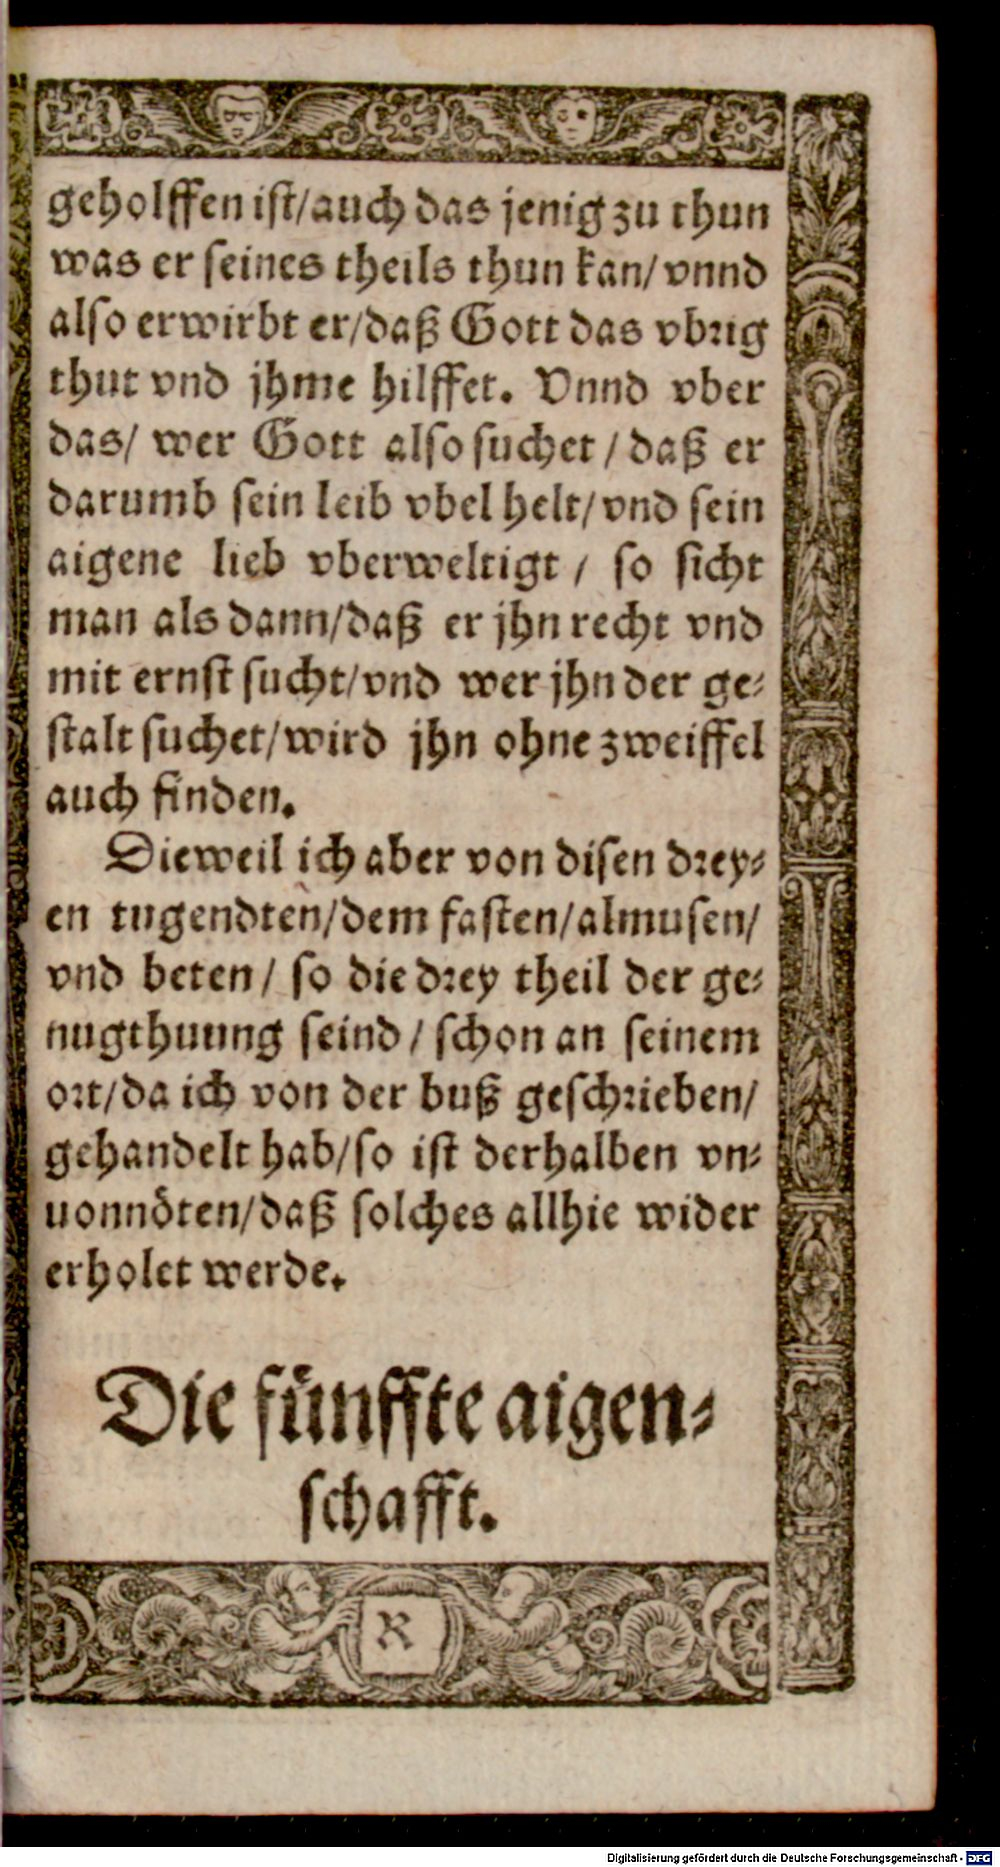 geholffen ist/auch das jenig zu thun
was er seines theils thun kan/vnnd
also erwirbt er/daß Gott das vbrig
thut vnd jhme hilffet. Vnnd vber
das/ wer Gott also suchet / daß er
darumb sein leib vbel helt/vnd sein
aigene lieb vberweltigt / so sicht
man als dann/daß er jhn recht vnd
mit ernst sucht/vnd wer jhn der ge⸗
stalt suchet/wird jhn ohne zweiffel
auch finden.
Dieweil ich aber von disen drey⸗
en tugendten/dem fasten/almusen/
vnd beten / so die drey theil der ge⸗
nugthuung seind / schon an seinem
ort/da ich von der buß geschrieben/
gehandelt hab/so ist derhalben vn⸗
uonnöten/daß solches allhie wider
erholet werde.
Die fünffte aigen⸗
schafft.
R
Digitalisierung gefördert durch die Deutsche Forschungsgemeinschaft - DFG